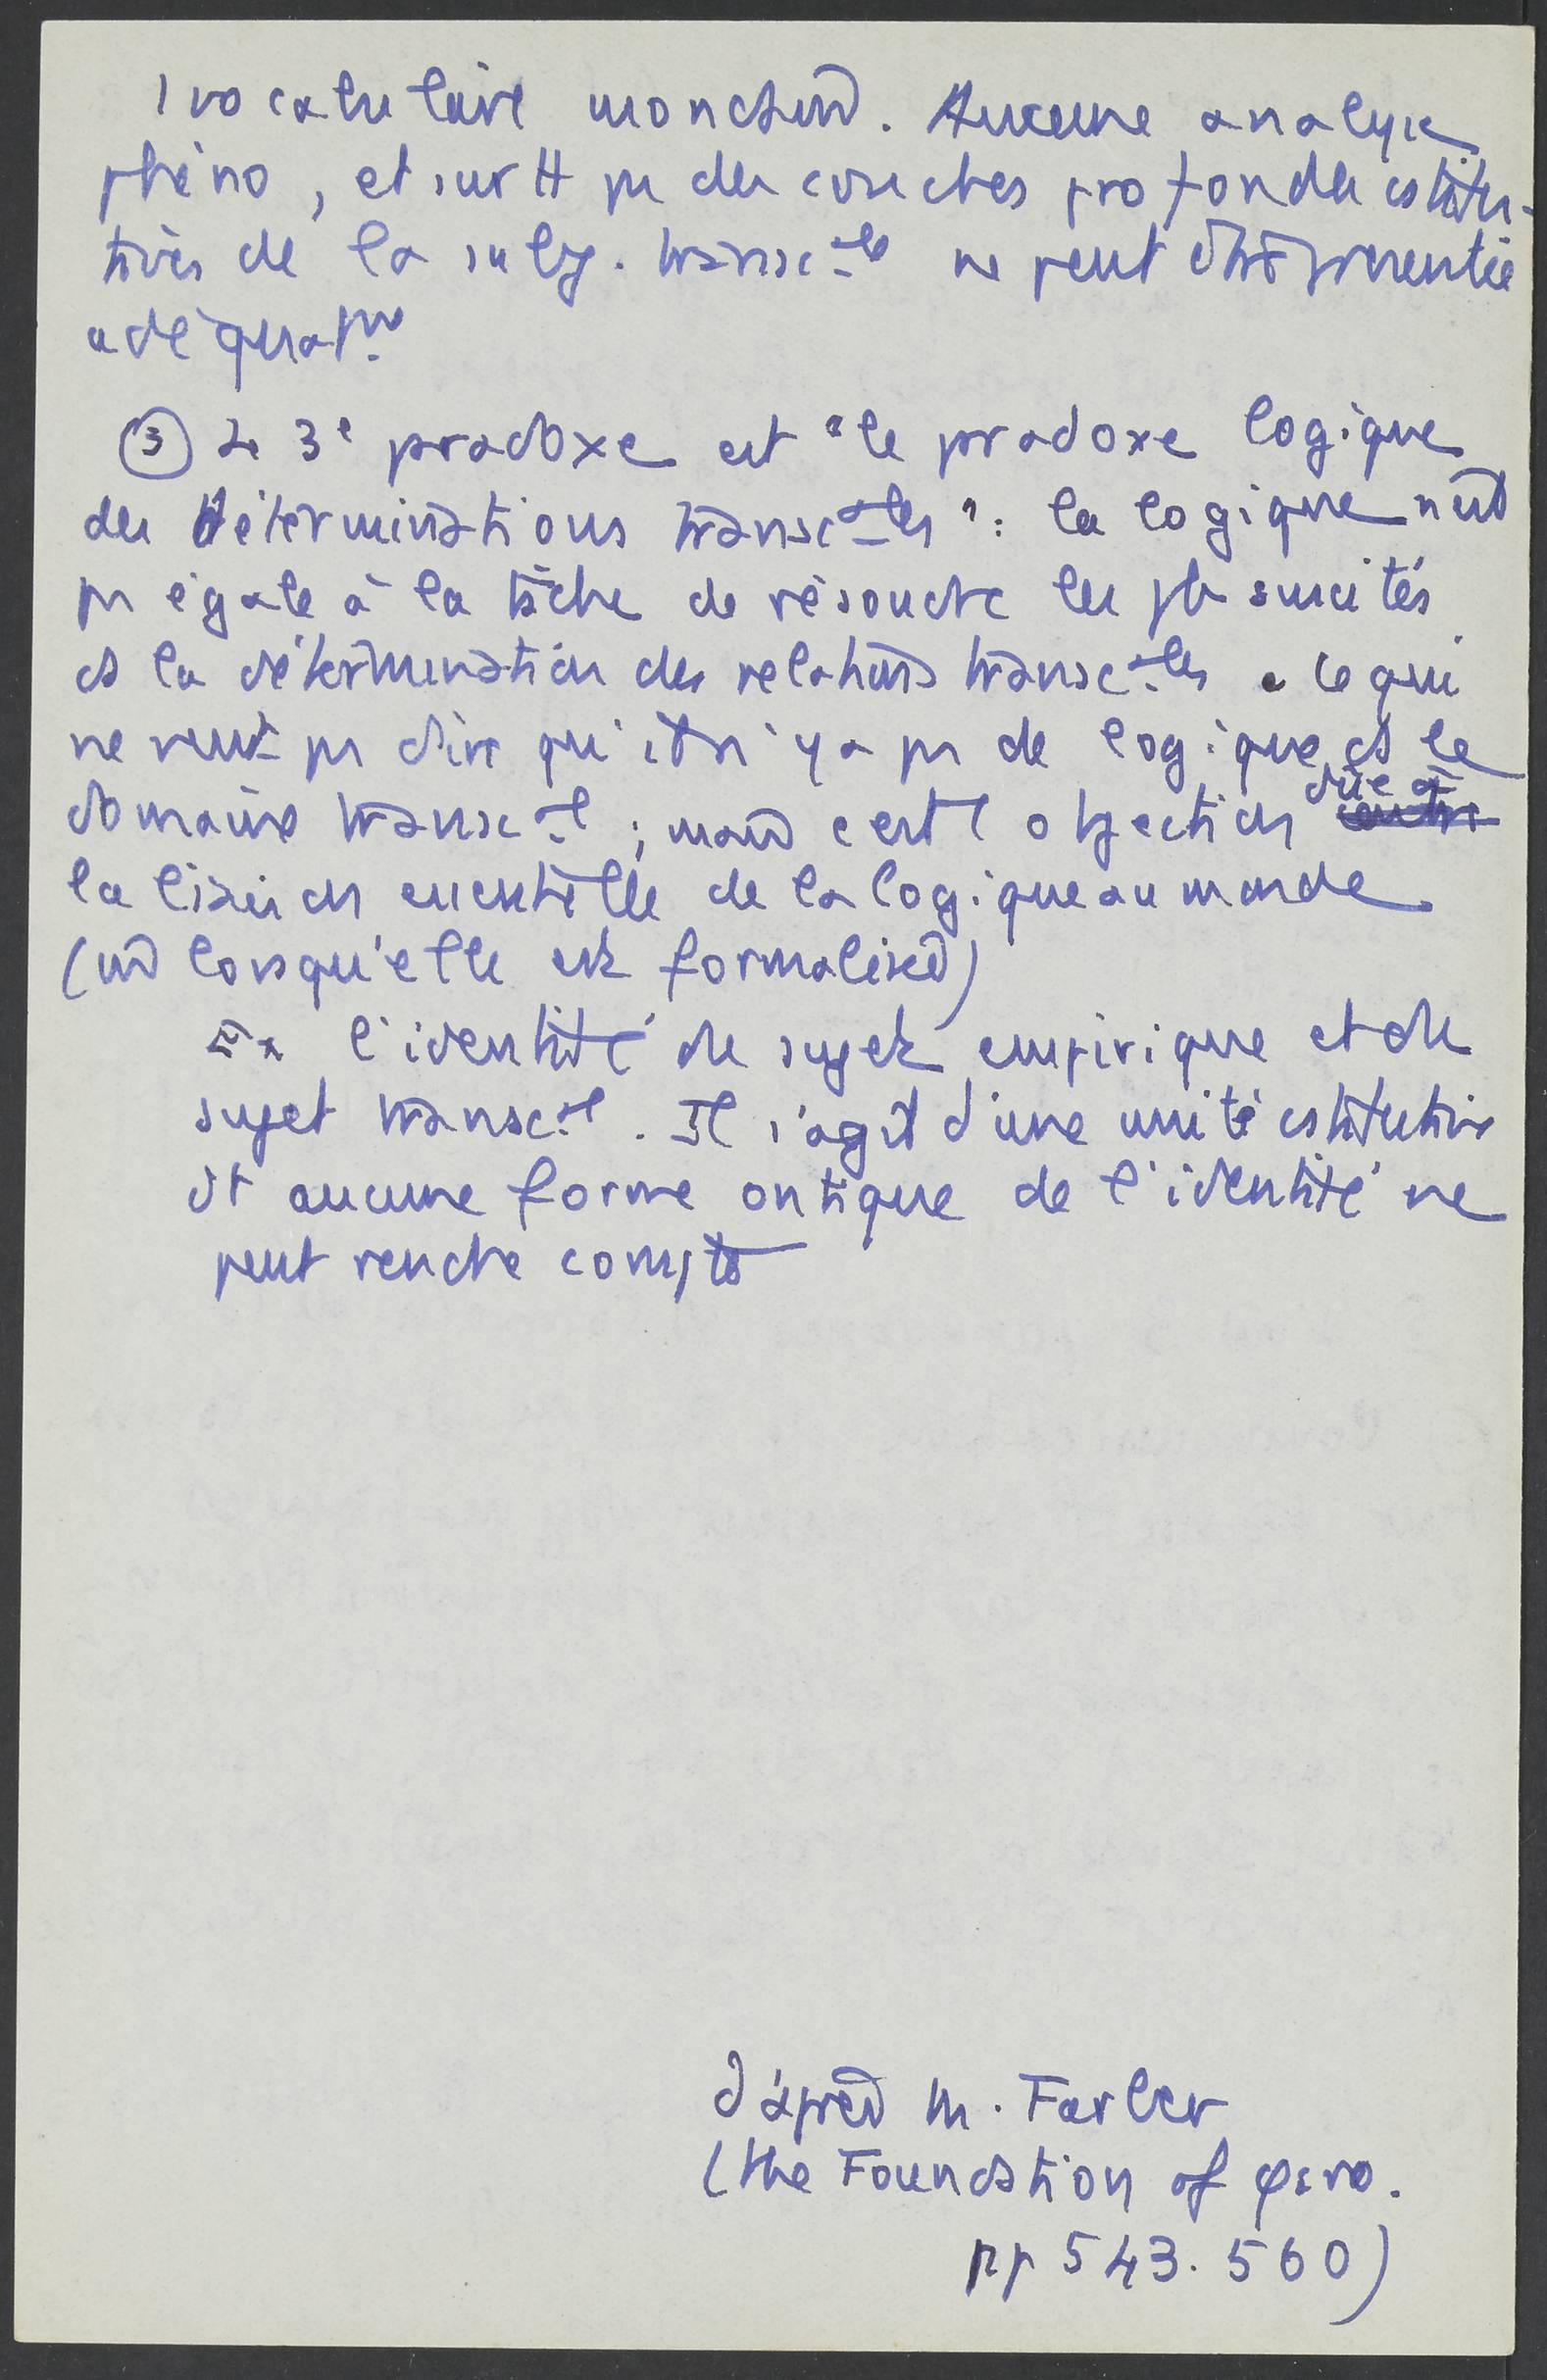 vocabulaire mondain. Aucune analyse
phéno, et surtt pas des couches profondes cstitu-
tives de la subj. transc-ale ne peut être présentée
adéquatmt
③ Le 3e pradoxe est "le pradoxe logique
des déterminations transc-ales": la logique n'est
pas égale à la tâche de résoudre les pb suscités
ds la détermination des relations transc-ales. ce qui
ne veut pas dire qu'il n'y a pas de logique ds le
domaine transc-al; mais c'est l'objection due à
la liaison essentielle de la logique au monde
(m lorsqu'elle est formalisée)
Ex l'identité du sujet empirique et du
sujet transc-al. Il s'agit d'une unité cstitutive
dt aucune forme ontique de l'identité ne
peut rendre compte
d'après M. Farber
(the Foundation of φéno.
pp 543.560)